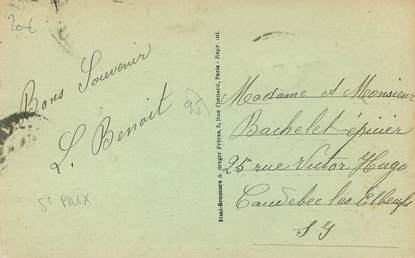 20€
Bons Souvenir
L. Benoit
95
St PRIX
Dreger Frères, 9, Rue Thenard, Paris - Repr. int.
Madame et Monsieur
Bachelet épicier
25 rue Victor Hugo
Caudebec les Elbeuf
S I